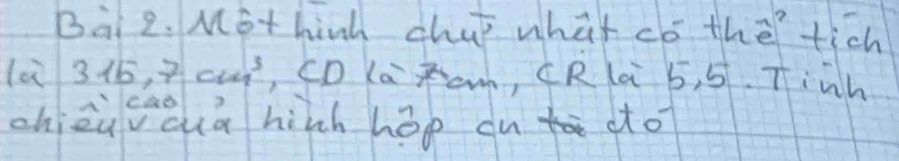 Bài 2. Một hình chữ nhật có thể tích
là 315,7 cm³, CD là 7cm, CR là 5,5. Tính
chiều cao của hình hộp cn đó